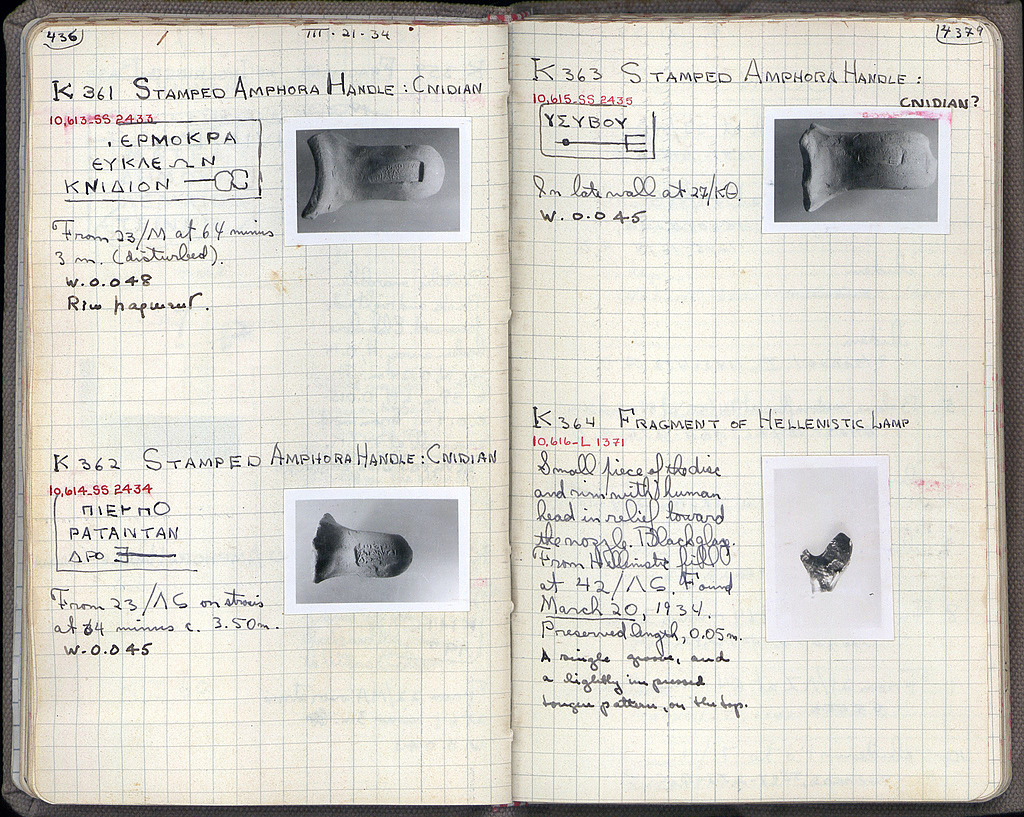 436
III-21-34
K 361 STAMPED AMPHORA HANDLE : CNIDIAN
10,613-SS 2433
. ΕΡΜΟΚΡΑ
ΕΥΚΛΕΩΝ
ΚΝΙΔΙΟΝ
From 23/M at 64 minus
3 m. (disturbed).
W. 0.048
Rim fragment.
K 362 STAMPED AMPHORA HANDLE : CNIDIAN
10,614-SS 2434
ΠΙΕΡΠΟ
ΡΑΤΑΝΤΑΝ
ΔΡΟ
From 23/ΛS on
at 64 minus c. 3.50 m.
W. 0.045
4379
K 363 STAMPED AMPHORA HANDLE :
CNIDIAN?
10,615-SS 2435
ΥΣΥΒΟΥ
In late wall at 27/ΚΘ.
W. 0.045
K 364 FRAGMENT OF HELLENISTIC LAMP
10,616-L 1371
Small piece of the disc
and rim with human
head in relief toward
the nozzle. Black glaze.
From Hellenistic fill
at 42/ΛS. Found
March 20, 1934.
Preserved length, 0.05 m.
A single groove, and
a lightly impressed
tongue pattern, on the top.